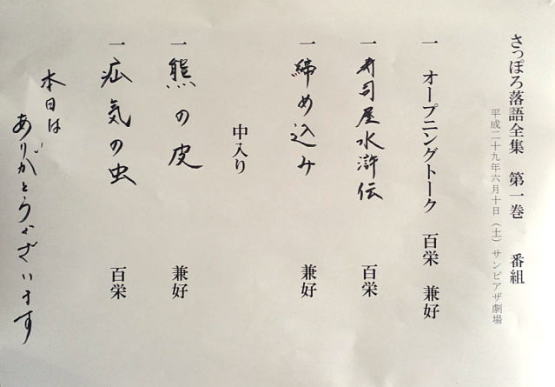 さっぽろ落語全集 第一巻 番組
平成二十九年六月十日(土) サンピアザ劇場
一 オープニングトーク 百栄 兼好
一 寿司屋水滸伝 百栄
一 締め込み 兼好
中入り
一 熊の皮 兼好
一 疝気の虫 百栄
本日は
ありがとうございます